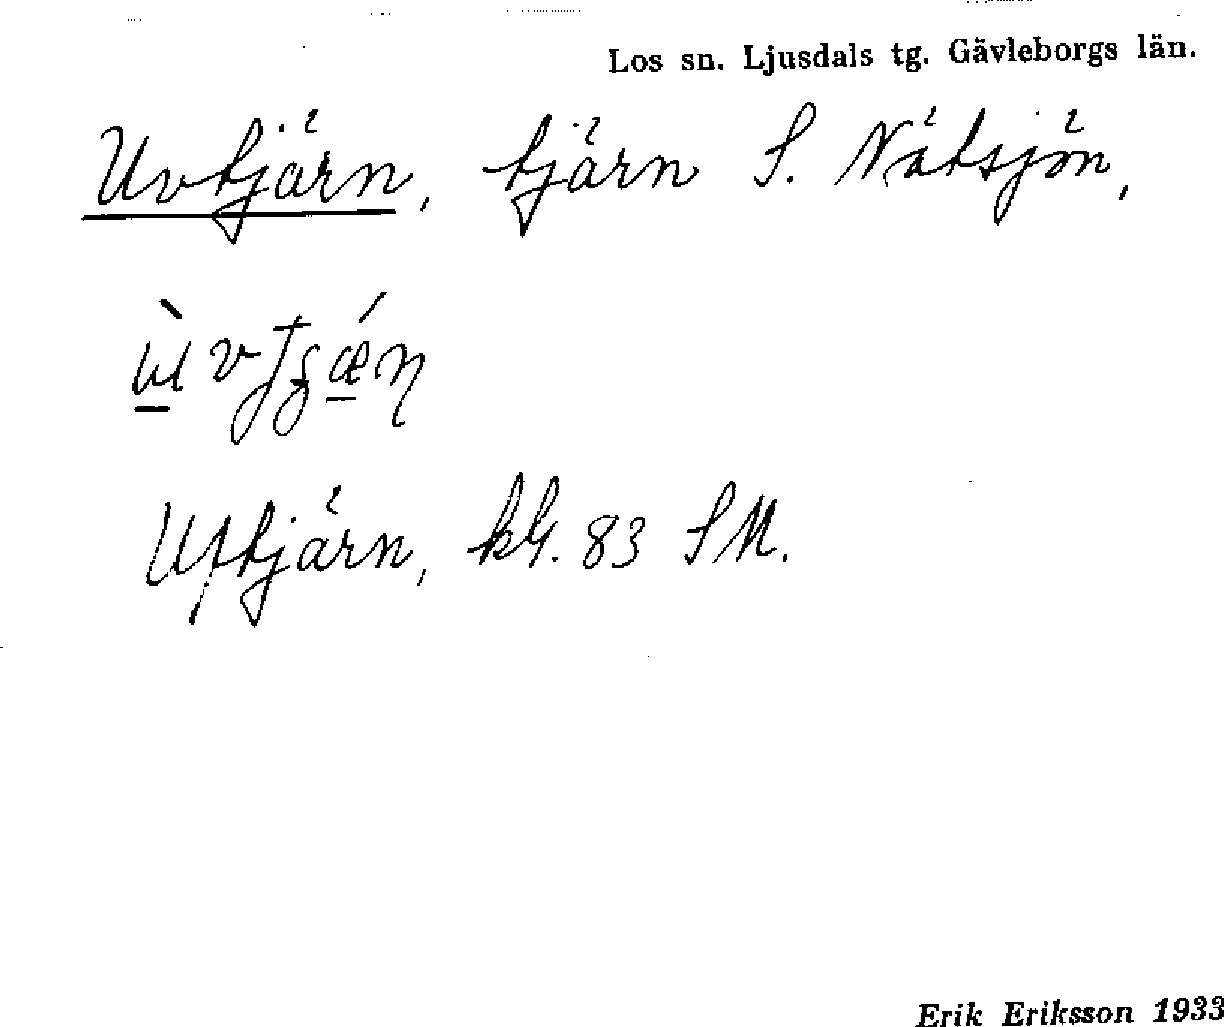 Los sn. Ljusdals tg. Gävleborgs län.
Uvtjärn, tjärn S. Nätsjön,
Uftjärn, kbl. 83 SM.
Erik Eriksson 1933